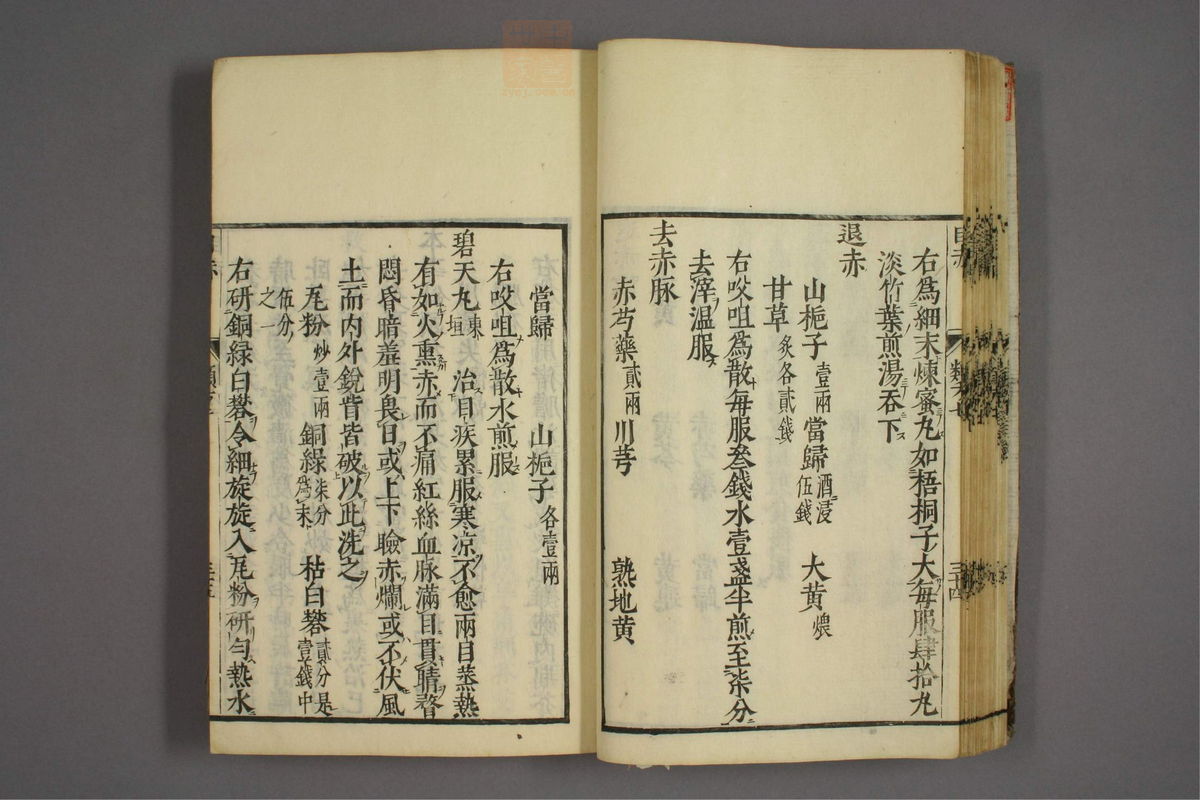 右為細末煉蜜丸如梧桐子大每服肆拾丸
淡竹葉煎湯吞下
退赤
山梔子壹兩 當歸酒浸伍錢 大黃煨
甘草炙各貳錢
右㕮咀為散每服叄錢水壹盞半煎至柒分
去滓溫服
去赤脉
赤芍藥貳兩 川芎 熟地黃
當歸 山梔子各壹兩
右㕮咀為散水煎服
碧天丸東垣 治目疾累服寒凉不愈兩目蒸熱
有如火熏赤而不痛紅絲血脉滿目貫睛瞀
悶昏暗羞明畏日或上下瞼赤爛或不伏風
土而內外銳眥皆破以此洗之
瓦粉炒壹兩 銅綠柒分為末 枯白礬貳分是壹錢中
伍分之一
右研銅綠白礬令細旋旋入瓦粉研勻熱水
目赤
三十四